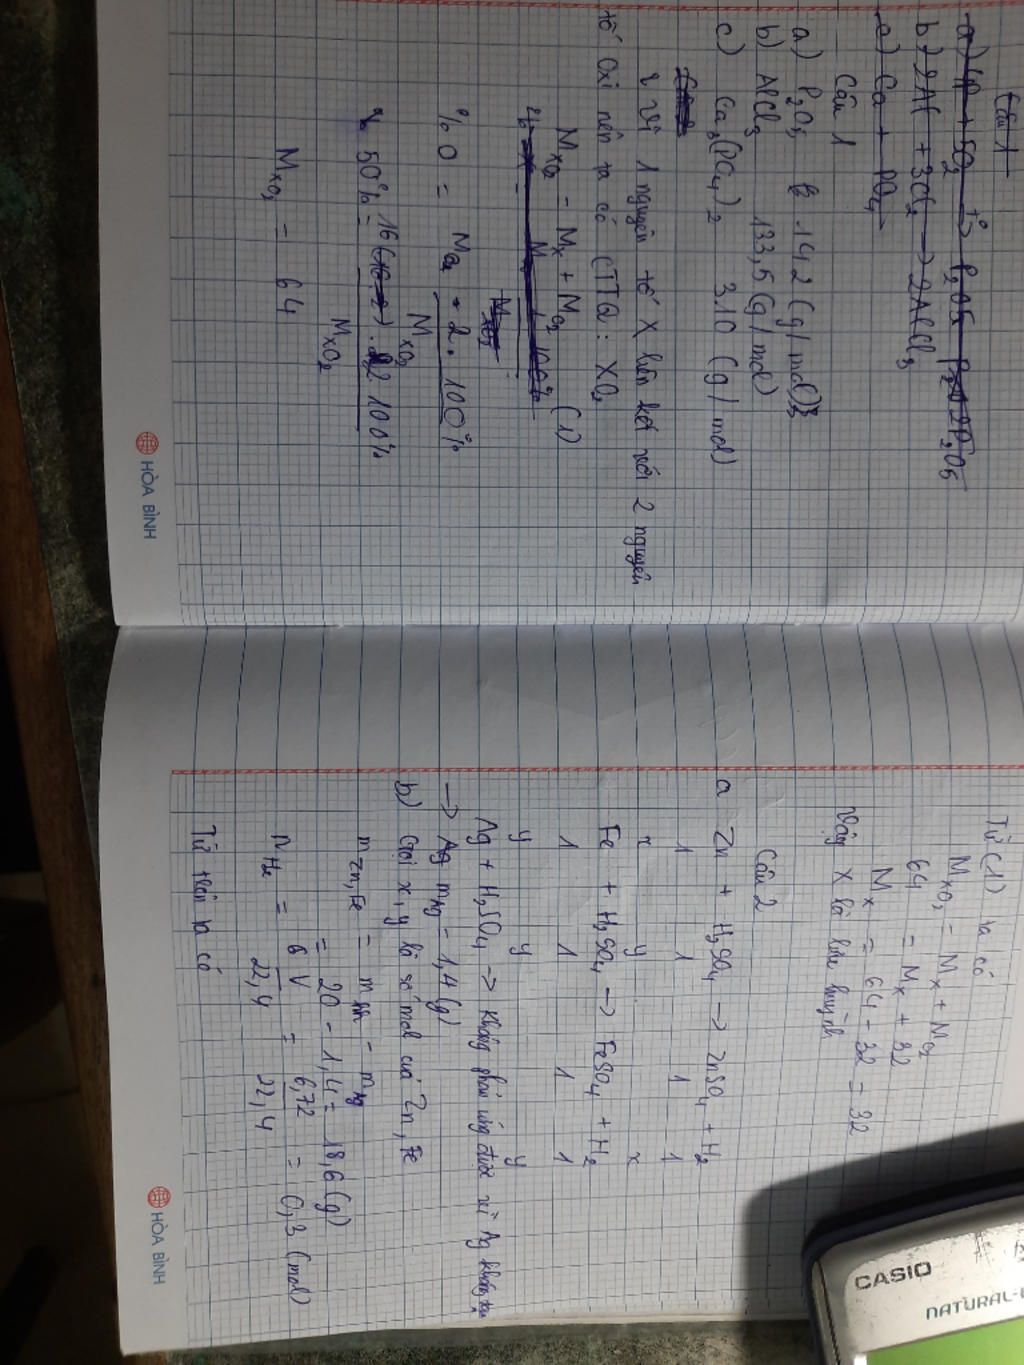 Câu 1
a) 4P + 5O2 t°→ P2O5 2P2O5
b) 2Al + 3Cl2 → 2AlCl3
c) Ca + PO4
Câu 1
a) P2O5 142 (g/mol)
b) AlCl3 133,5 (g/mol)
c) Ca3(PO4)2 310 (g/mol)
2 Vì 1 nguyên tố X liên kết với 2 nguyên
tố Oxi nên ta có CTTQ: XO2
MXO2 = MX + MO2 (1)
MXO2
%O = MO . 2 . 100%
MXO2
50% = 16 . 2 100%
MXO2
MXO2 = 64
HÒA BÌNH
Từ (1) ta có
MXO2 = MX + MO2
64 = MX + 32
MX = 64 - 32 = 32
Vậy X là lưu huỳnh
Câu 2
a Zn + H2SO4 → ZnSO4 + H2
1 1 1 1
x y x
Fe + H2SO4 → FeSO4 + H2
1 1 1 1
y y y
Ag + H2SO4 → không phản ứng được vì Ag không
→ Ag mAg = 1,4 (g)
b) Gọi x, y là số mol của Zn, Fe
mZn,Fe = mhh - mAg
= 20 - 1,4 = 18,6 (g)
nH2 = V = 6,72 = 0,3 (mol)
22,4 22,4
Từ trên ta có
HÒA BÌNH
CASIO
NATURAL-